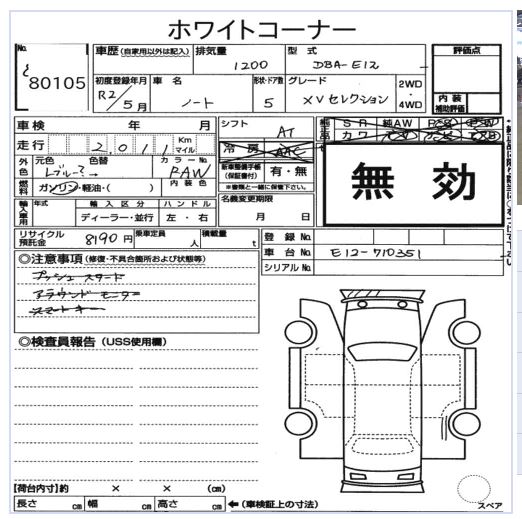 ホワイトコーナー
No.
80105
車歴 (自家用以外は記入)
排気量
1200
型式
DBA-E12
評価点
初度登録年月
R2/5月
車名
ノート
形状・ドア数
5
グレード
XVセレクション
2WD
・
4WD
内装
補助評価
車検 年 月
シフト
AT
走行 2,011 Km マイル
冷房 AAC
純正品
SR 純AW PS PW
カワ
無効
外色
元色
Lブルー?
色替
→
カラーNo.
RAW
内装色
新車整備手帳(保証書付)
有・無
※書類と一緒に保管下さい。
燃料
ガソリン・軽油・( )
輸入車用
年式
輸入区分
ディーラー・並行
ハンドル
左・右
名義変更期限
月 日
リサイクル預託金
8190円
乗車定員
人
積載量
t
登録No.
車台No.
E12-710351
シリアルNo.
◎注意事項 (修復・不具合箇所および状態等)
プッシュスタート
アラウンドモニター
スマートキー
◎検査員報告 (USS使用欄)
【荷台内寸】約 × × (cm)
長さ cm 幅 cm 高さ cm ←(車検証上の寸法)
スペア